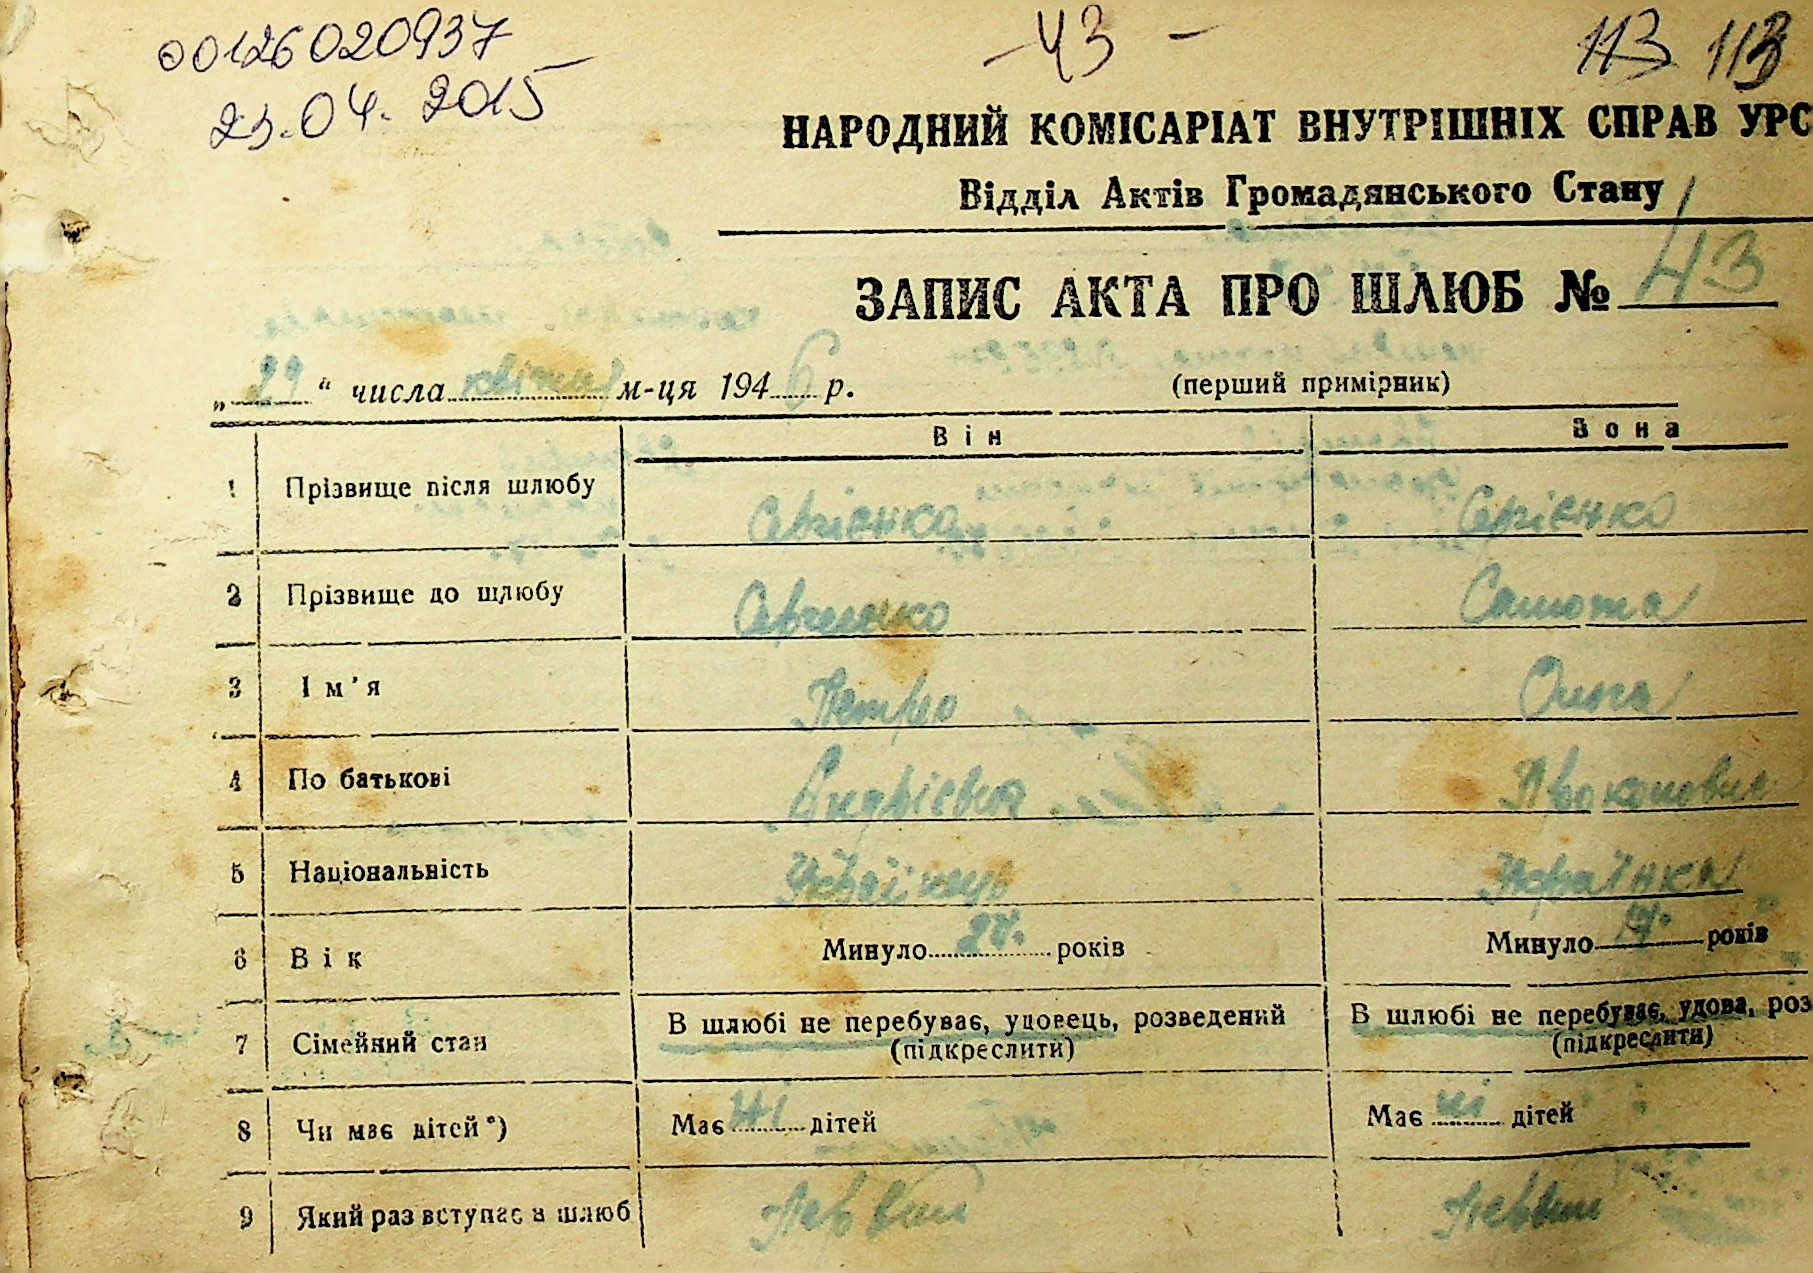 00126020937
- 43 -
113 113
23.04.2015
НАРОДНИЙ КОМІСАРІАТ ВНУТРІШНІХ СПРАВ УРС
Відділ Актів Громадянського Стану
ЗАПИС АКТА ПРО ШЛЮБ № 43
„29“ числа квітня м-ця 1946 р. (перший примірник)
Він Вона
1 Прізвище після шлюбу Сергієнко Сергієнко
2 Прізвище до шлюбу Сергиенко Самота
3 Ім'я Петро Ольга
4 По батькові Андрієвич Прокоповна
5 Національність Українець Українка
6 Вік Минуло 24. років Минуло років
7 Сімейний стан В шлюбі не перебуває, удовець, розведений В шлюбі не перебуває, удова, роз
(підкреслити) (підкреслити)
8 Чи має дітей*) Має ні дітей Має ні дітей
9 Який раз вступає в шлюб Первий Первий